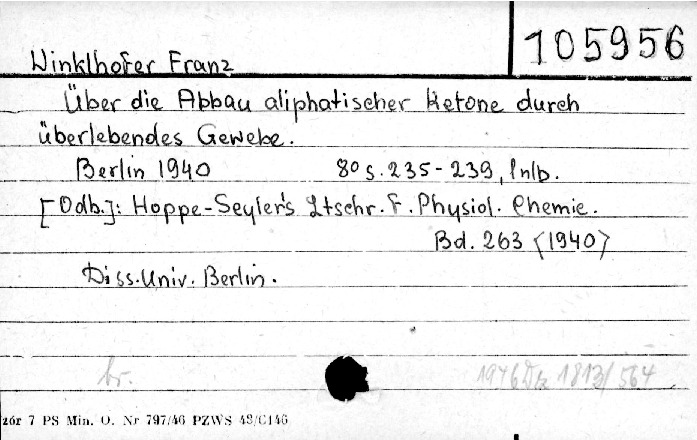 105956
Winklhofer Franz
Über die Abbau aliphatischer Ketone durch
überlebendes Gewebe.
Berlin 1940 8o s. 235-239, 1 nlb.
[Odb.]: Hoppe-Seyler's Ztschr. f. Physiol. Chemie.
Bd. 263 <1940>
Diss. Univ. Berlin.
br. 1946 1813/564
zór 7 PS Min. O. Nr 797/46 PZWS 48/C146